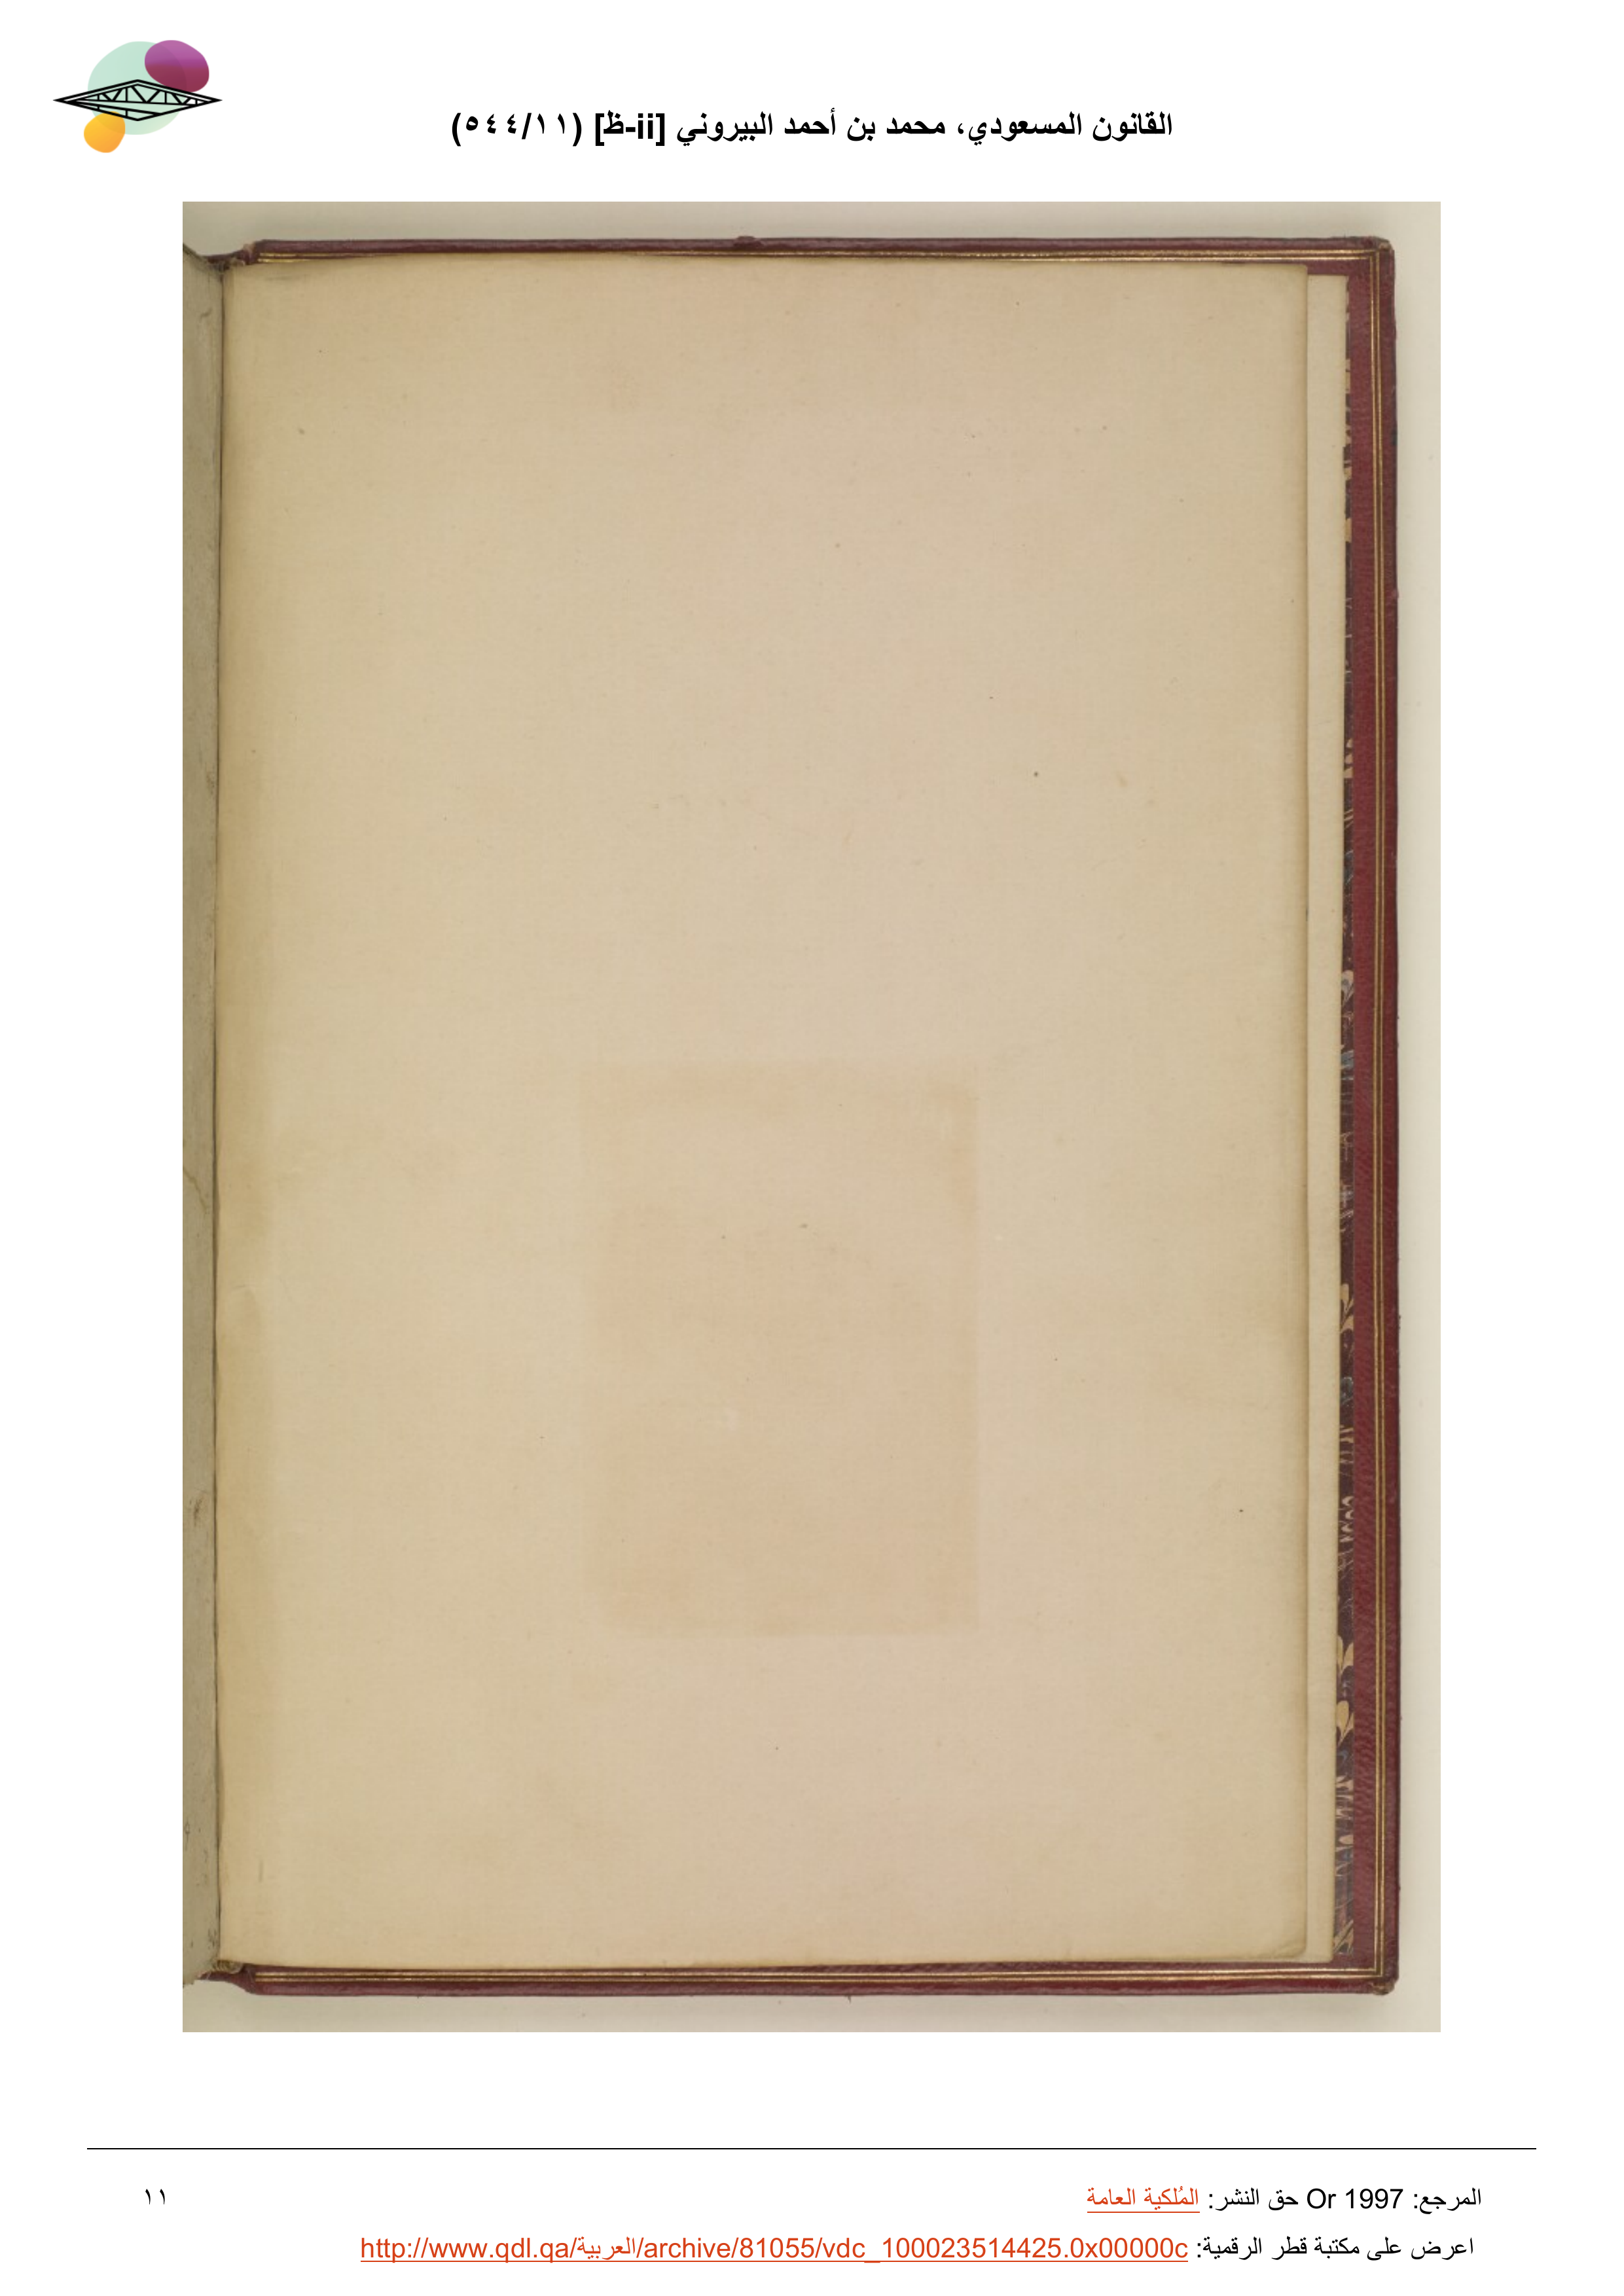 القانون المسعودي، محمد بن أحمد البيروني [ii-ظ] (٥٤٤/١١)
المرجع: Or 1997 حق النشر: المُلكية العامة
١١
اعرض على مكتبة قطر الرقمية: http://www.qdl.qa/العربية/archive/81055/vdc_100023514425.0x00000c